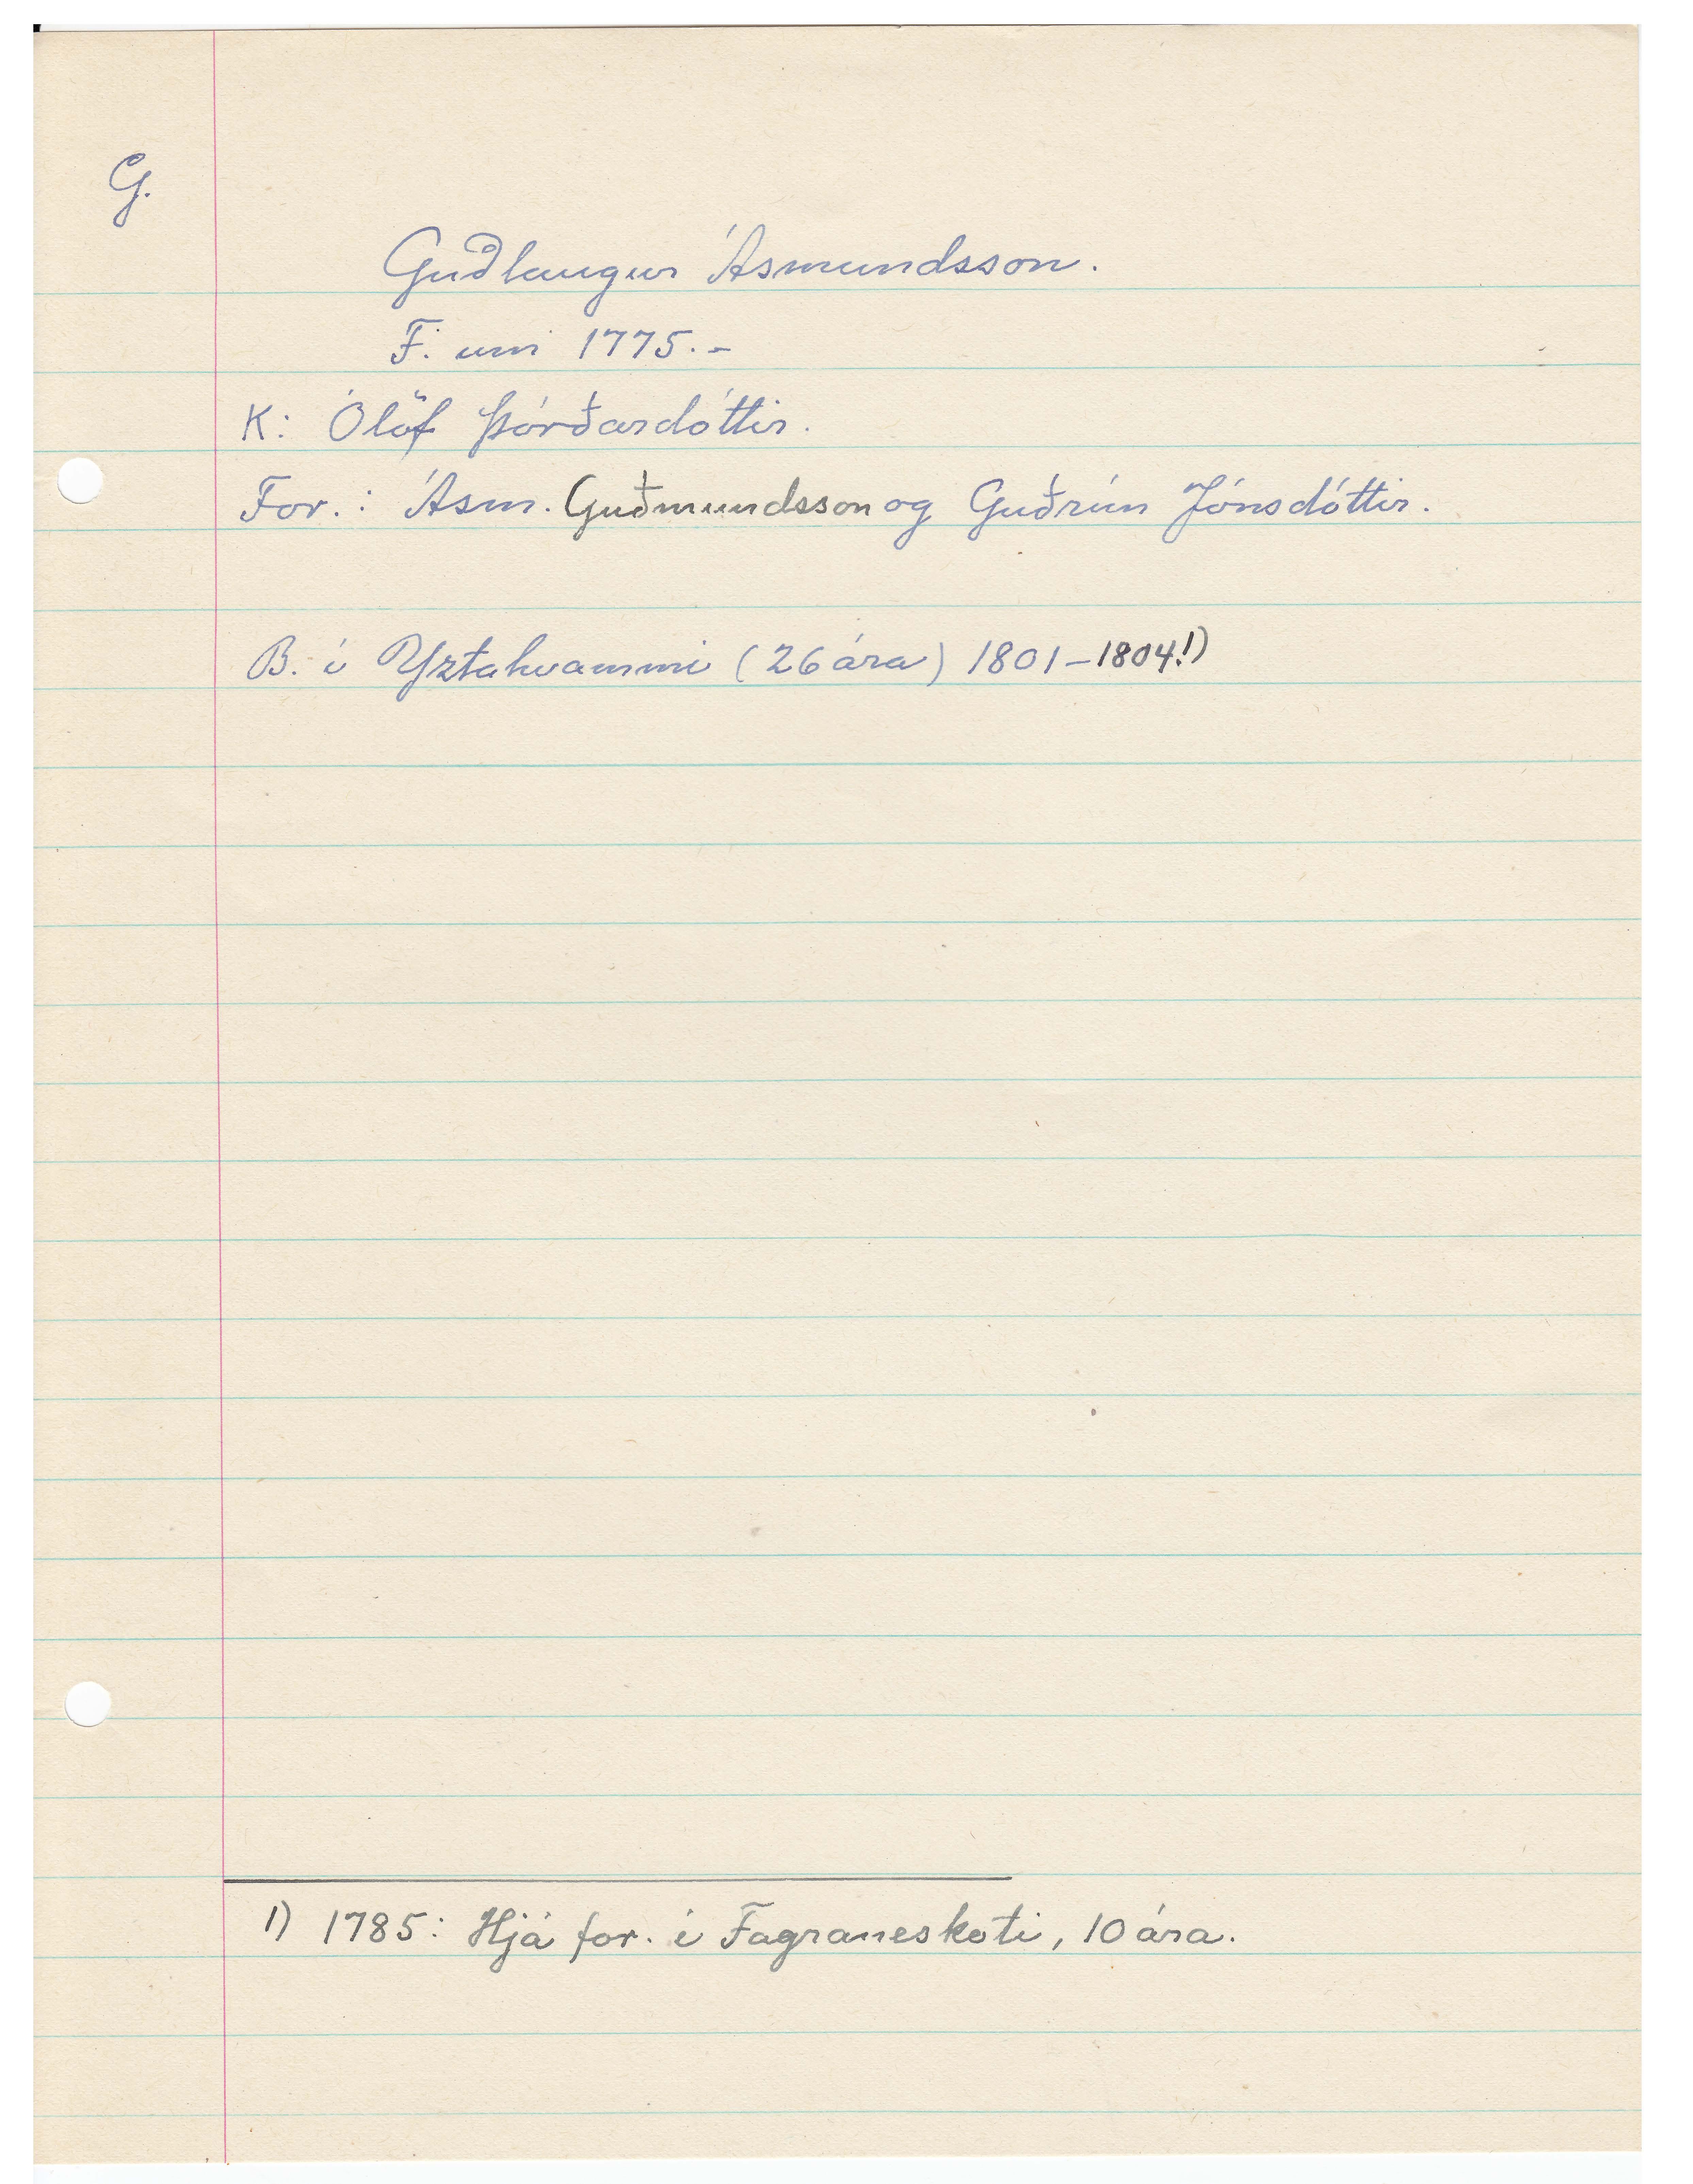 G.
Guðlaugur Ásmundsson.
F. um 1775.-
K: Ólöf Þórðardóttir.
For.: Ásm. Guðmundsson og Guðrún Jónsdóttir.
B. í Yztahvammi (26 ára) 1801-1804.1)
1) 1785: Hjá for. í Fagraneskoti, 10 ára.